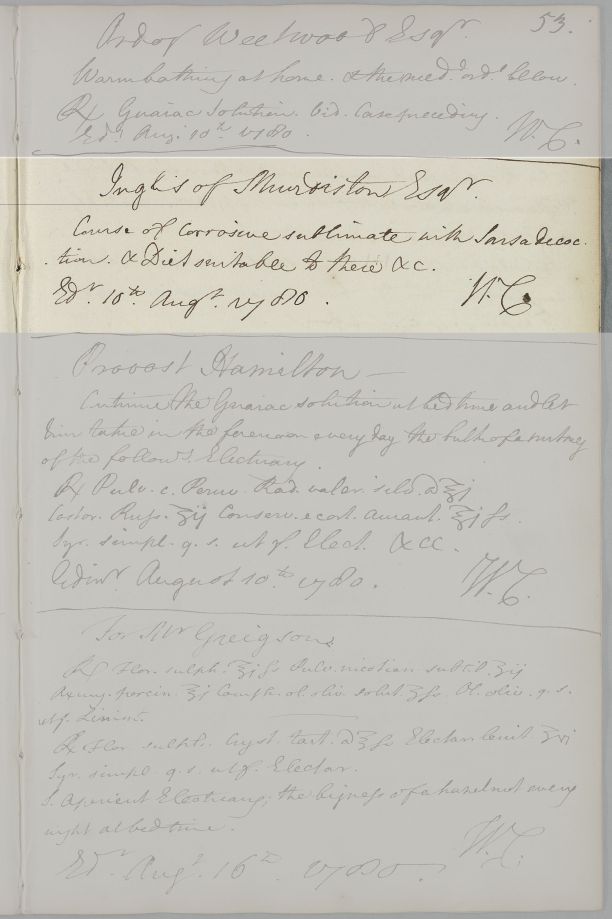 53.
Ord of Weetwood Esqr.
Warmbathing at home. & the med. ord. below.
℞ Guaiac Solution. bid. Case preceding.
Edr. Aug. 10th 1780. W. C.
Inglis of Murdiston Esqr.
Course of Corrosive sublimate with Sarsa decoc-
tion. & Diet suitable to these &c.
Edr. 10th Augt. 1780. W. C.
Provost Hamilton
Continue the Guaiac solution at bed time and let
him take in the forenoon every day the bulk of a nutmeg
of the follows. Electuary.
℞ Pulv. c. Peruv. Rad. valer. silv. a ℥j
Castor. Russ. ʒij Conserv. e cort. aurant. ℥j fs.
Syr. simpl. q. s. ut f. Elect. &cc.
Edinr. August 10th 1780. W. C.
For Mr Greigson
℞ Flor. sulph. ℥j fs Pulv. nicotian. subtil. ʒij
Axung. porcin. ℥j Camph. ol. oliv. solut. ʒfs. Ol. oliv. q. s.
ut f. Linimt.
℞ Flor. sulph. Cryst. tart. a ℥fs Electar. lenit. ʒvj
Syr. simpl. q. s. ut f. Electar.
S. Aperient Electuary; the bigness of a hazel nut every
night at bed time.
Edr Augt. 16th 1780. W. C.